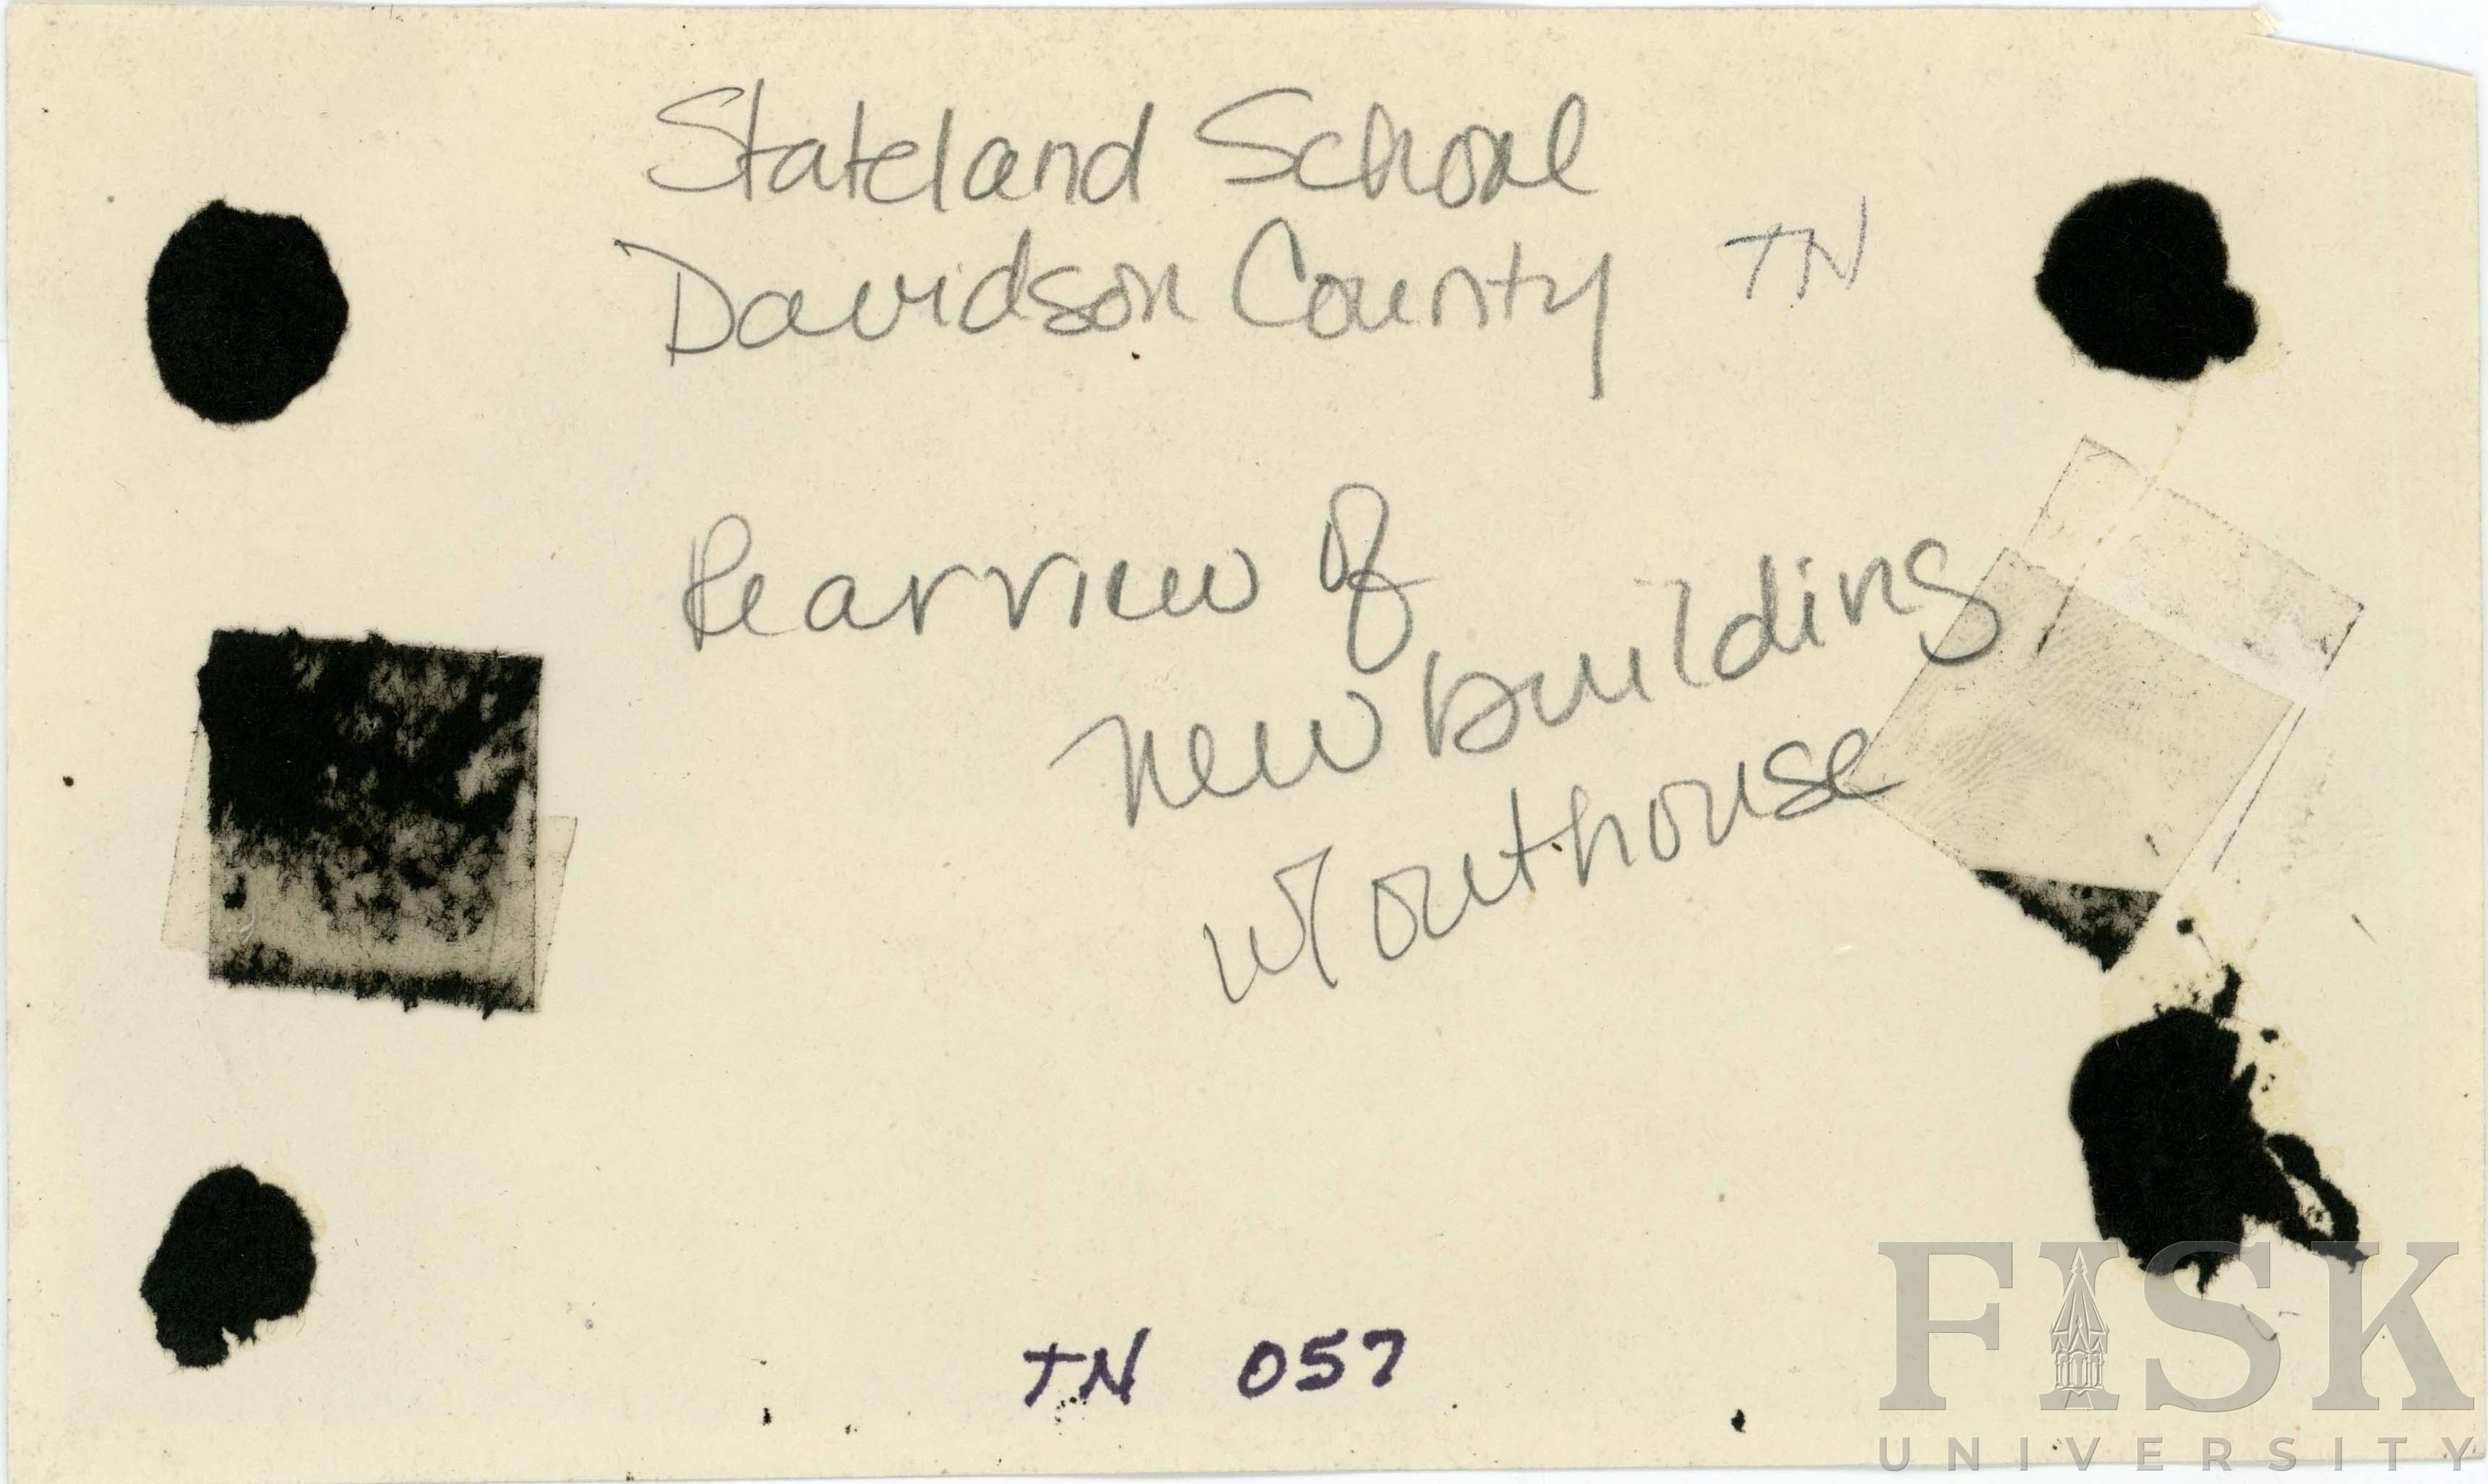 Stateland School
Davidson County TN
Rearview of
new building
w/outhouse
TN 057
FISK
UNIVERSITY